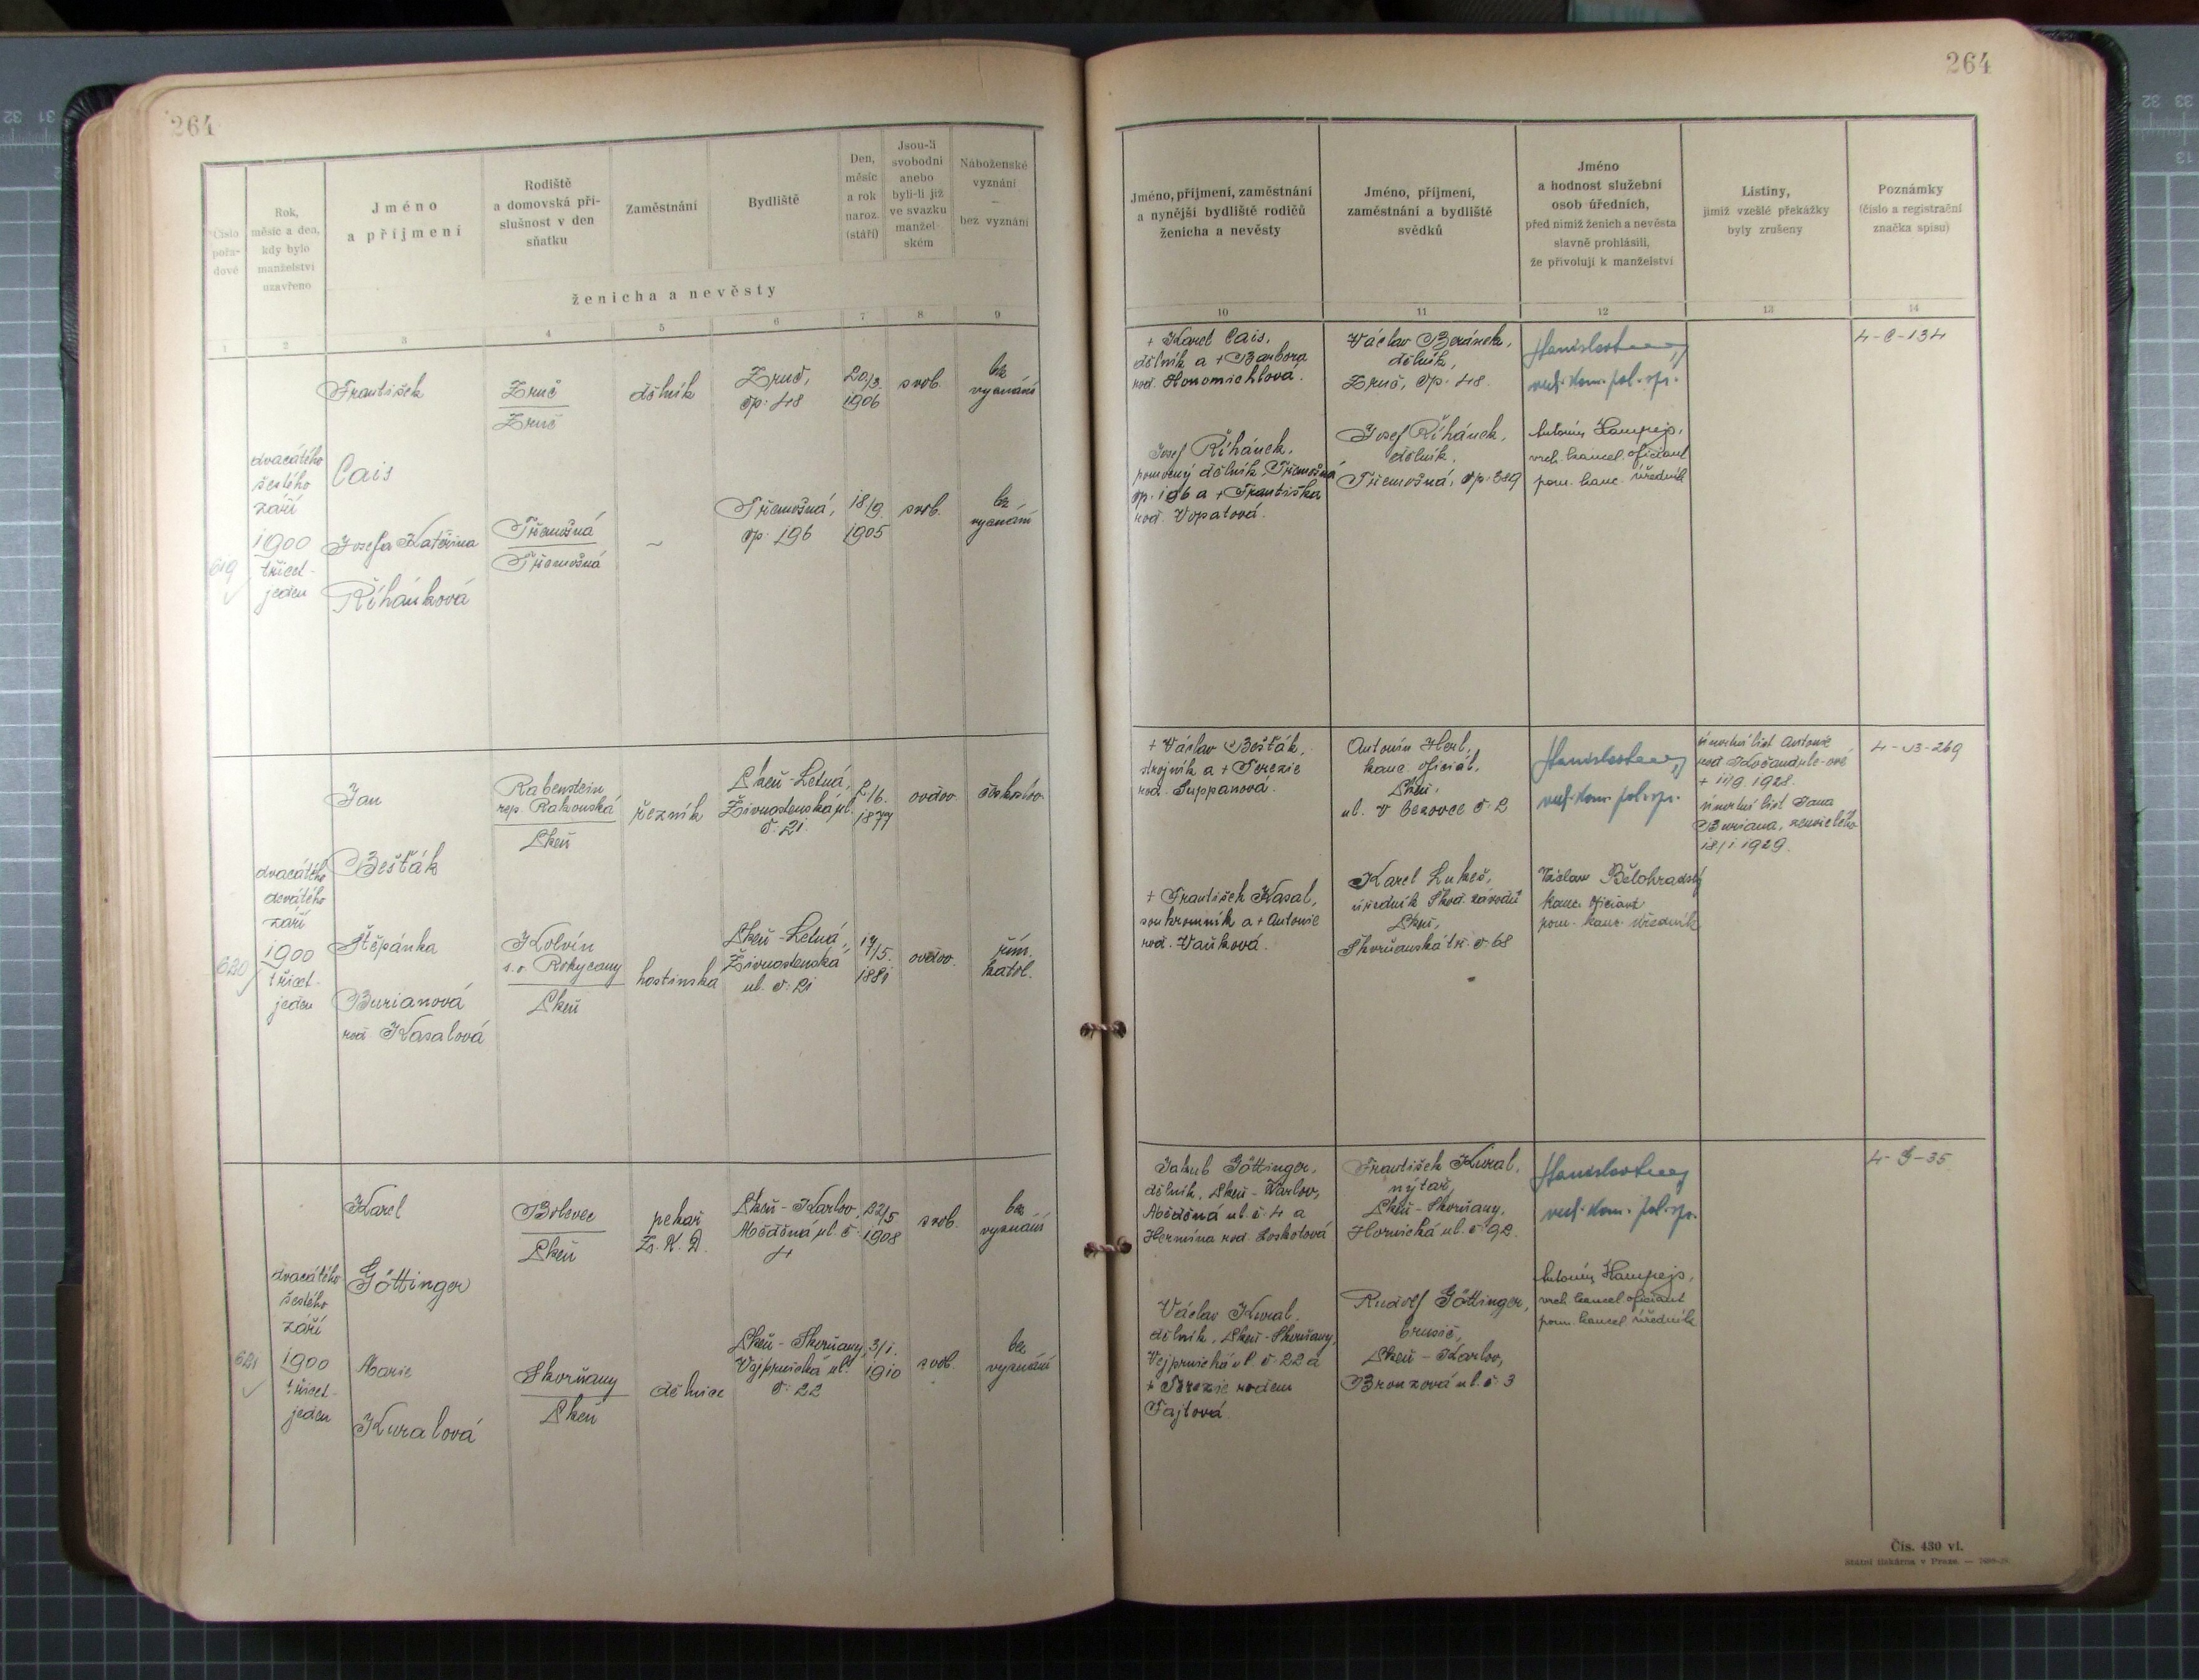 264
264
Číslo pořadové
Rok, měsíc a den, kdy bylo manželství uzavřeno
Jméno a příjmení
Rodiště a domovská příslušnost v den sňatku
Zaměstnání
Bydliště
Den, měsíc a rok naroz. (stáří)
Jsou-li svobodni anebo byli-li již ve svazku manželském
Náboženské vyznání – bez vyznání
ženicha a nevěsty
Jméno, příjmení, zaměstnání a nynější bydliště rodičů ženicha a nevěsty
Jméno, příjmení, zaměstnání a bydliště svědků
Jméno a hodnost služební osob úředních, před nimiž ženich a nevěsta slavně prohlásili, že přivolují k manželství
Listiny, jimiž vzešlé překážky byly zrušeny
Poznámky (číslo a registrační značka spisu)
1 2 3 4 5 6 7 8 9
10 11 12 13 14
619
dvacátého
šestého
září
1900
třicet-
jeden
František
Cais
Zruč
Zruč
dělník
Zruč,
čp. 48
20/3.
1906
svob.
bez
vyznání
Josefa Kateřina
Říhánková
Třemošná
Třemošná
~
Třemošná,
čp. 196
18/9.
1905
svob.
bez
vyznání
+ Karel Cais,
dělník a + Barbora
roz. Honomichlová.
Josef Říhánek,
pomocný dělník, Třemošná
čp. 196 a + Františka
roz. Vopatová.
Václav Beránek,
dělník,
Zruč, čp. 48.
Josef Říhánek,
dělník,
Třemošná, čp. 389
vrch. kom. pol. spr.
Antonín Hampejs,
vrch. kancel. oficiant
pom. kanc. úředník
4-C-134
620
dvacátého
devátého
září
1900
třicet-
jeden
Jan
Bešťák
Rabenstein
rep. Rakouská
Plzeň
řezník
Plzeň-Letná,
Živnostenská ul.
č. 21
2/6.
1877
ovdov.
českoslov.
Štěpánka
Burianová
roz. Kasalová
Kolvín
s. o. Rokycany
Plzeň
hostinská
Plzeň-Letná,
Živnostenská
ul. č. 21
17/5.
1881
ovdov.
řím.
katol.
+ Václav Bešťák,
strojník a + Terezie
roz. Suppanová.
+ František Kasal,
soukromník a + Antonie
roz. Vaňková.
Antonín Herl,
kanc. oficiál,
Plzeň,
ul. V bezovce č. 2
Karel Lukeš,
úředník Škod. závodů
Plzeň,
Skvrňanská tř. č. 68
vrch. kom. pol. spr.
Václav Bělohradský
kanc. oficiant
pom. kanc. úředník
úmrtní list Antonie
+ 11/9. 1928.
úmrtní list Jana
Buriana, zemřelého
18/1 1929.
4-B-269
621
dvacátého
šestého
září
1900
třicet-
jeden
Karel
Göttinger
Bolevec
Plzeň
pekař
Plzeň-Karlov,
Měděná ul. č.
4
22/5
1908
svob.
bez
vyznání
Marie
Kuralová
Skvrňany
Plzeň
dělnice
Plzeň-Skvrňany,
Vejprnická ul.
č. 22
3/1.
1910
svob.
bez
vyznání
Jakub Göttinger,
dělník, Plzeň-Karlov,
Měděná ul. č. 4 a
Hermína roz. Loskotová
Václav Kural,
dělník, Plzeň-Skvrňany,
Vejprnická ul. č. 22 a
+ Terezie rozem
Fajtová
František Kural,
nýtař,
Plzeň-Skvrňany,
Hornická ul. č. 92.
Rudolf Göttinger,
brusič,
Plzeň-Karlov,
Bronzová ul. č. 3
vrch. kom. pol. spr.
Antonín Hampejs,
vrch. kancel. oficiant
pom. kancel. úředník
4-G-35
Čís. 430 vl.
Státní tiskárna v Praze. —